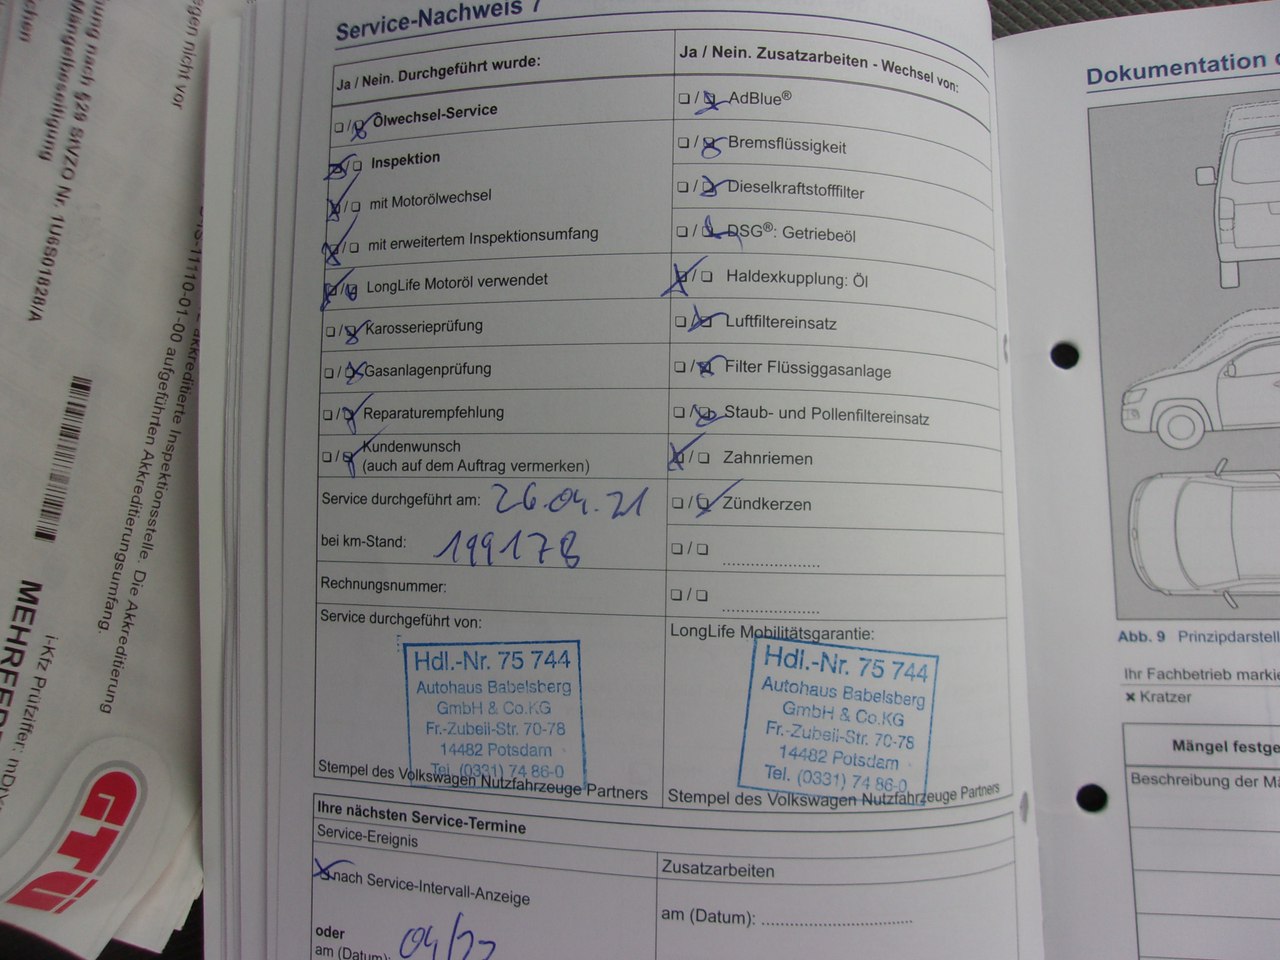 Service-Nachweis 7
Ja / Nein. Durchgeführt wurde:
❏ / ❏ Ölwechsel-Service
❏ / ❏ Inspektion
❏ / ❏ mit Motorölwechsel
❏ / ❏ mit erweitertem Inspektionsumfang
❏ / ❏ LongLife Motoröl verwendet
❏ / ❏ Karosserieprüfung
❏ / ❏ Gasanlagenprüfung
❏ / ❏ Reparaturempfehlung
❏ / ❏ Kundenwunsch
(auch auf dem Auftrag vermerken)
Service durchgeführt am: 26.04.21
bei km-Stand: 199178
Rechnungsnummer:
Service durchgeführt von:
Hdl.-Nr. 75 744
Autohaus Babelsberg
GmbH & Co.KG
Fr.-Zubeil-Str. 70-78
14482 Potsdam
Tel. (0331) 74 86-0
Stempel des Volkswagen Nutzfahrzeuge Partners
Ja / Nein. Zusatzarbeiten - Wechsel von:
❏ / ❏ AdBlue®
❏ / ❏ Bremsflüssigkeit
❏ / ❏ Dieselkraftstofffilter
❏ / ❏ DSG®: Getriebeöl
❏ / ❏ Haldexkupplung: Öl
❏ / ❏ Luftfiltereinsatz
❏ / ❏ Filter Flüssiggasanlage
❏ / ❏ Staub- und Pollenfiltereinsatz
❏ / ❏ Zahnriemen
❏ / ❏ Zündkerzen
❏ / ❏ .....................
❏ / ❏ .....................
LongLife Mobilitätsgarantie:
Hdl.-Nr. 75 744
Autohaus Babelsberg
GmbH & Co.KG
Fr.-Zubeil-Str. 70-78
14482 Potsdam
Tel. (0331) 74 86-0
Stempel des Volkswagen Nutzfahrzeuge Partners
Ihre nächsten Service-Termine
Service-Ereignis
nach Service-Intervall-Anzeige
oder
am (Datum): 04/
Zusatzarbeiten
am (Datum): .................................
Dokumentation
Abb. 9 Prinzipdarstell
Ihr Fachbetrieb markie
✖ Kratzer
Mängel festge
Beschreibung der Mä
gen nicht vor
nach §29 StVZO Nr. 1U6S01828/A
Mängelbeseitigung
11110-01-00 aufgeführten Akkreditierungsumfang.
akkreditierte Inspektionsstelle. Die Akkreditierung
i-Kfz Prüfziffer:
GTÜ